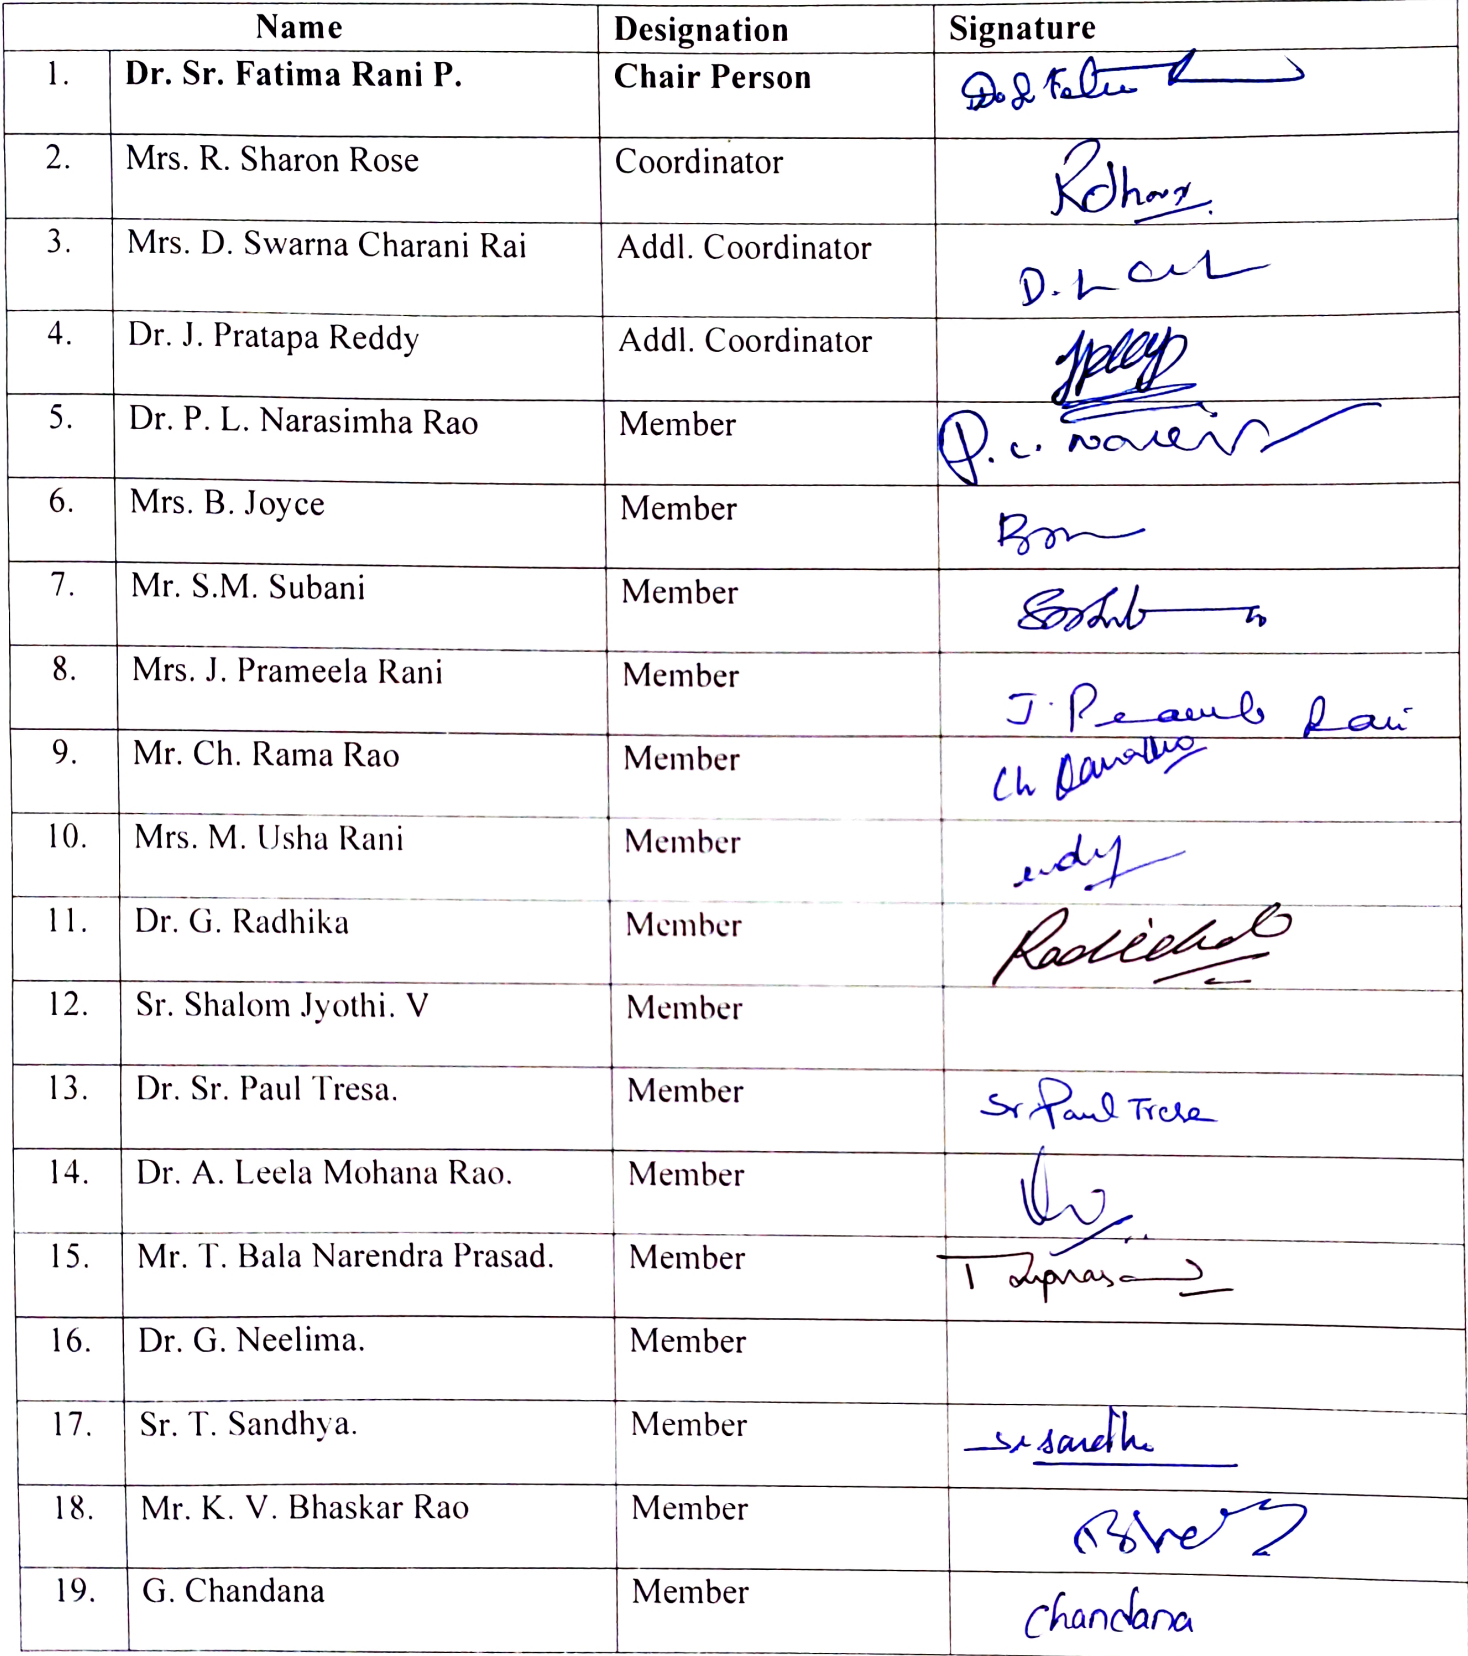 Name Designation Signature
1. Dr. Sr. Fatima Rani P. Chair Person
2. Mrs. R. Sharon Rose Coordinator
3. Mrs. D. Swarna Charani Rai Addl. Coordinator
4. Dr. J. Pratapa Reddy Addl. Coordinator
5. Dr. P. L. Narasimha Rao Member
6. Mrs. B. Joyce Member
7. Mr. S.M. Subani Member
8. Mrs. J. Prameela Rani Member
9. Mr. Ch. Rama Rao Member
10. Mrs. M. Usha Rani Member
11. Dr. G. Radhika Member
12. Sr. Shalom Jyothi. V Member
13. Dr. Sr. Paul Tresa. Member Sr Paul Tresa
14. Dr. A. Leela Mohana Rao. Member
15. Mr. T. Bala Narendra Prasad. Member
16. Dr. G. Neelima. Member
17. Sr. T. Sandhya. Member
18. Mr. K. V. Bhaskar Rao Member
19. G. Chandana Member Chandana